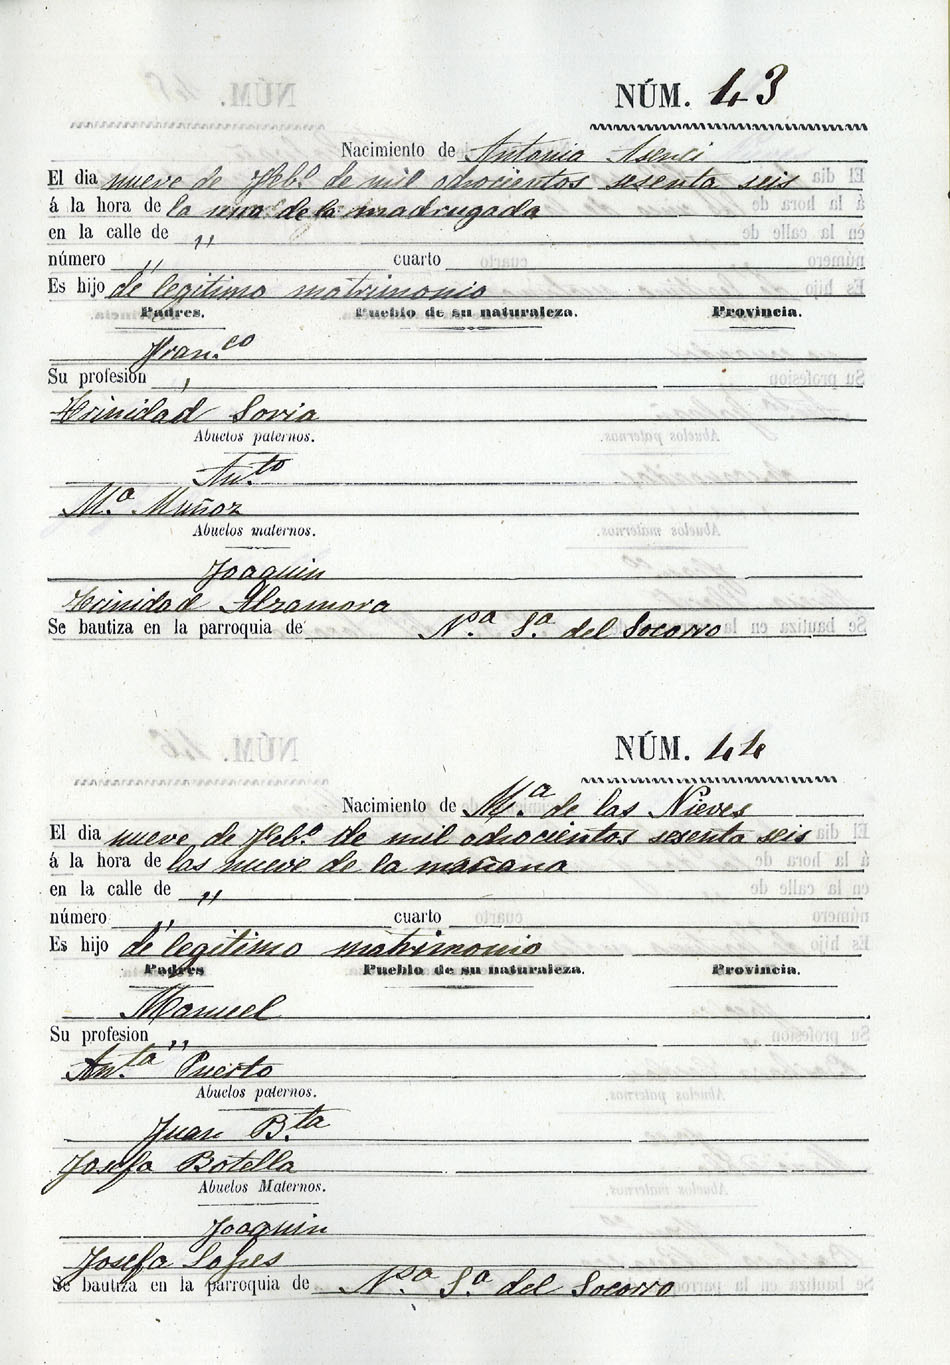 NÚM. 43
Nacimiento de Antonia Asenci
El dia nueve de Feb.º de mil ochocientos sesenta seis
á la hora de la una de la madrugada
en la calle de "
número " cuarto
Es hijo de legitimo matrimonio
Padres. Pueblo de su naturaleza. Provincia.
Fran.co
Su profesion "
Trinidad Soria
Abuelos paternos.
Ant.to
M.a Muñoz
Abuelos maternos.
Joaquin
Trinidad Alzamora
Se bautiza en la parroquia de N.ra S.a del Socorro
NÚM. 44
Nacimiento de M.a de las Nieves
El dia nueve de Feb.º de mil ochocientos sesenta seis
á la hora de las nueve de la mañana
en la calle de "
número " cuarto
Es hijo de legitimo matrimonio
Padres Pueblo de su naturaleza. Provincia.
Manuel
Su profesion "
An.ta Puerto
Abuelos paternos.
Juan B.ta
Josefa Botella
Abuelos Maternos.
Joaquin
Josefa Lopes
Se bautiza en la parroquia de N.ra S.a del Socorro